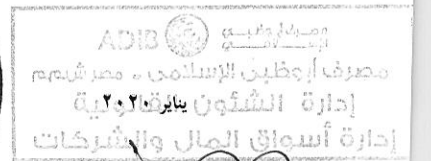 ADIB مصرف أبوظبي الإسلامي
مصرف أبوظبي الإسلامي - مصر ش.م.م
إدارة الشئون القانونية
يناير ٢٠٢٠
إدارة أسواق المال والشركات